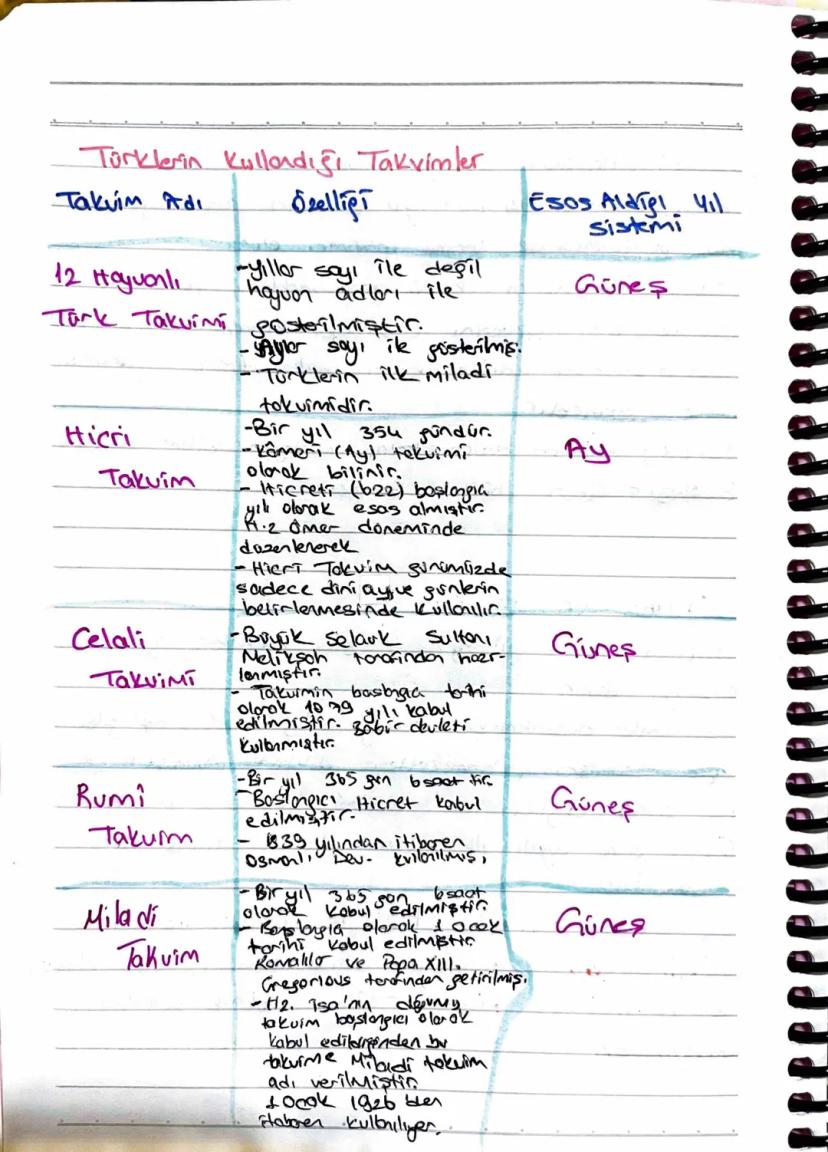 Türklerin Kullandığı Takvimler
Takvim Adı
Özelliği
Esas Aldığı Yıl
sistemi
12 Hayvanlı
Türk Takvimi
-Yıllar sayı ile değil
hayvan adları ile
gösterilmiştir.
- Aylar sayı ile gösterilmiş.
- Türklerin ilk miladi
takvimidir.
Güneş
Hicri
Takvim
-Bir yıl 354 gündür.
-Kâmeri (Ay) takvimi
olarak bilinir.
- Hicreti (622) başlangıç
yılı olarak esas almıştır.
H.z Ömer döneminde
düzenlenerek
- Hicri Takvim günümüzde
sadece dini ay ve günlerin
belirlenmesinde kullanılır.
Ay
Celali
Takvimi
-Büyük Selçuk Sultanı
Melikşah tarafından hazır-
lanmıştır.
- Takvimin başlangıç tarihi
olarak 1079 yılı kabul
edilmiştir. devleti
kullanmıştır.
Güneş
Rumî
Takvim
-Bir yıl 365 gün 6 saat tir.
-Başlangıcı Hicret kabul
edilmiştir.
- 1839 yılından itibaren
Osmanlı Dev. kullanılmış.
Güneş
Miladi
Takvim
- Bir yıl 365 gün 6 saat
olarak kabul edilmiştir.
- Başlangıç olarak 1 Ocak
tarihi kabul edilmiştir.
Romalılar ve Papa XIII.
Gregorious tarafından getirilmiş.
-Hz. İsa'nın doğumu
takvim başlangıcı olarak
kabul edildiğinden bu
takvime Miladi takvim
adı verilmiştir.
1 Ocak 1926 'dan
itibaren kullanılıyor.
Güneş